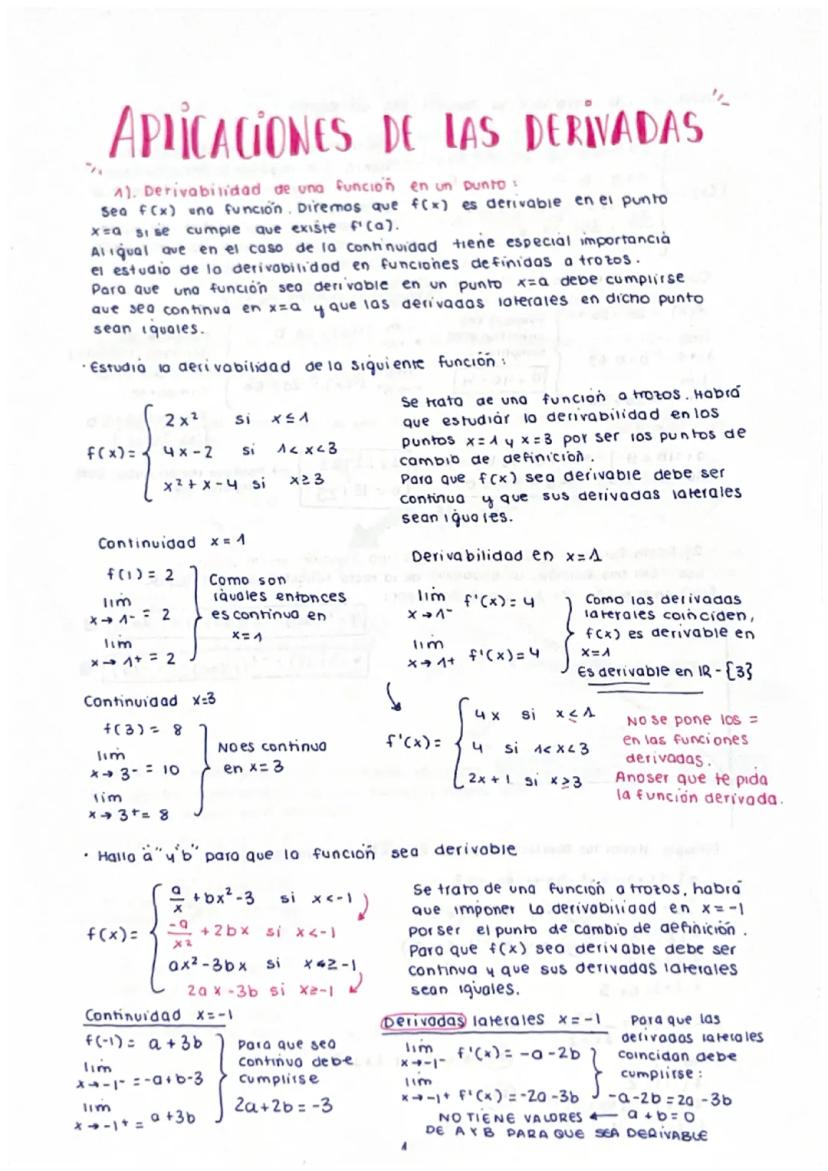 APLICACIONES DE LAS DERIVADAS
1). Derivabilidad de una función en un punto:
Sea f(x) una función. Diremos que f(x) es derivable en el punto
x=a si se cumple que existe f'(a).
Al igual que en el caso de la continuidad tiene especial importancia
el estudio de la derivabilidad en funciones definidas a trozos.
Para que una función sea derivable en un punto x=a debe cumplirse
que sea continua en x=a y que las derivadas laterales en dicho punto
sean iguales.
· Estudia la derivabilidad de la siguiente función:
f(x)= { 2x² si x≤1
4x-2 si 1<x<3
x²+x-4 si x≥3
Se trata de una función a trozos. Habrá
que estudiar la derivabilidad en los
puntos x=1 y x=3 por ser los puntos de
cambio de definición.
Para que f(x) sea derivable debe ser
continua y que sus derivadas laterales
sean iguales.
Continuidad x=1
f(1)=2
lim x→1- = 2
lim x→1+ = 2
Como son
iguales entonces
es continua en
x=1
Derivabilidad en x=1
lim x→1- f'(x)=4
lim x→1+ f'(x)=4
Como las derivadas
laterales coinciden,
f(x) es derivable en
x=1
Es derivable en IR-{3}
Continuidad x=3
f(3)= 8
lim x→3- = 10
lim x→3+ = 8
No es continua
en x=3
f'(x)= { 4x si x<1
4 si 1<x<3
2x+1 si x≥3
No se pone los =
en las funciones
derivadas.
A no ser que te pida
la función derivada.
· Halla "a" y "b" para que la función sea derivable
f(x)= { a/x +bx²-3 si x<-1
-a/x² +2bx si x<-1
ax²-3bx si x≥-1
2ax-3b si x≥-1
Se trata de una función a trozos, habrá
que imponer la derivabilidad en x=-1
por ser el punto de cambio de definición.
Para que f(x) sea derivable debe ser
continua y que sus derivadas laterales
sean iguales.
Continuidad x=-1
f(-1)= a+3b
lim x→-1- = -a+b-3
lim x→-1+ = a+3b
Para que sea
continua debe
cumplirse
2a+2b=-3
Derivadas laterales x=-1
lim x→-1- f'(x)=-a-2b
lim x→-1+ f'(x)=-2a-3b
Para que las
derivadas laterales
coincidan debe
cumplirse:
-a-2b=2a-3b
a+b=0
NO TIENE VALORES ←
DE A Y B PARA QUE SEA DERIVABLE
1